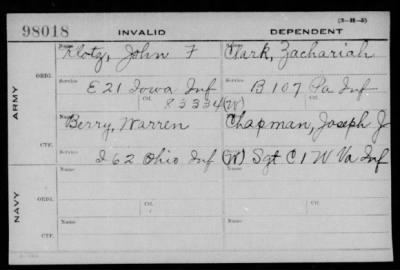 98018 INVALID DEPENDENT (3-H-3)
Name Name
Klotz, John F Clark, Zachariah
ORIG. Service Service
E 21 Iowa Inf B 107 Pa Inf
Ctf. 83334 (W) Ctf.
ARMY
Name Name
Berry, Warren Chapman, Joseph J
CTF. Service Service
I 62 Ohio Inf (W) Sgt C 1 W Va Inf
Name Name
ORIG. Service Service
Ctf. Ctf.
NAVY
Name Name
CTF.